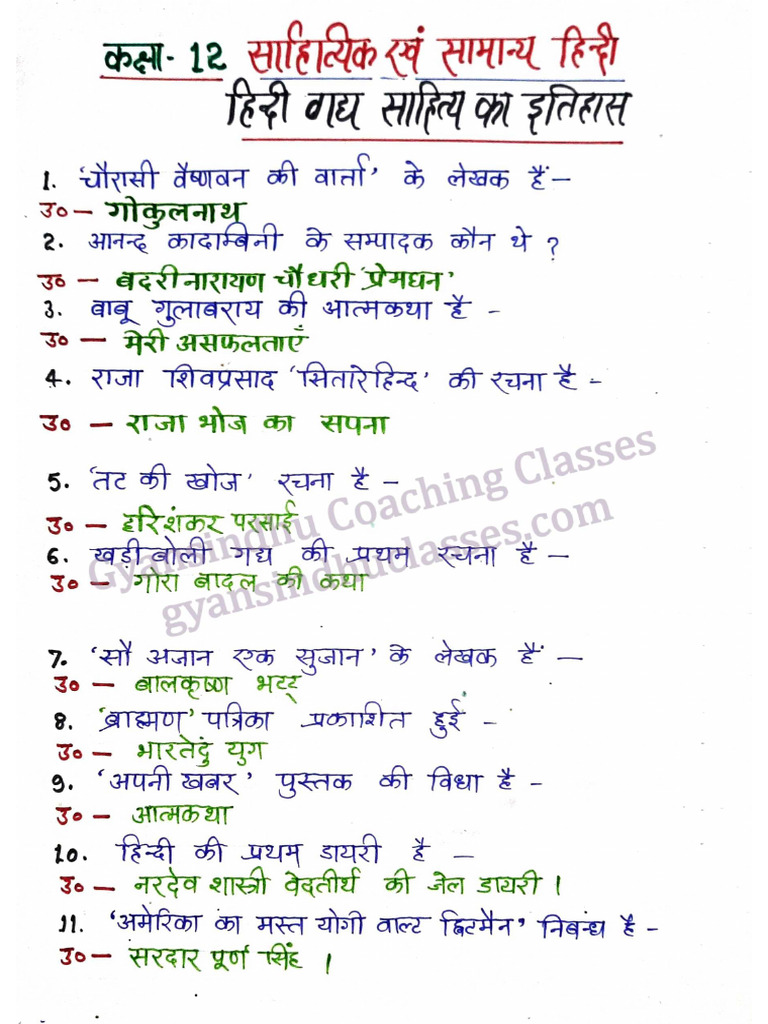 कक्षा- 12 साहित्यिक एवं सामान्य हिन्दी
हिन्दी गद्य साहित्य का इतिहास
1. 'चौरासी वैष्णवन की वार्ता' के लेखक हैं –
उ० – गोकुलनाथ
2. आनन्द कादाम्बिनी के सम्पादक कौन थे ?
उ० – बदरीनारायण चौधरी 'प्रेमघन'
3. बाबू गुलाबराय की आत्मकथा है -
उ० – मेरी असफलताएँ
4. राजा शिवप्रसाद 'सितारेहिन्द' की रचना है -
उ० – राजा भोज का सपना
5. 'तट की खोज' रचना है –
उ० – हरिशंकर परसाई
6. खड़ीबोली गद्य की प्रथम रचना है –
उ० – गोरा बादल की कथा
Gyansindhu Coaching Classes
gyansindhuclasses.com
7. 'सौ अजान एक सुजान' के लेखक हैं –
उ० – बालकृष्ण भटट्
8. 'ब्राह्मण' पत्रिका प्रकाशित हुई -
उ० – भारतेदुं युग
9. 'अपनी खबर' पुस्तक की विधा है -
उ० – आत्मकथा
10. हिन्दी की प्रथम डायरी है –
उ० – नरदेव शास्त्री वेदतीर्थ की जेल डायरी ।
11. 'अमेरिका का मस्त योगी वाल्ट ह्विटमैन' निबंध है -
उ० – सरदार पूर्ण सिंह ।